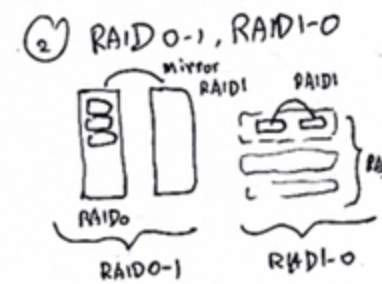 ② RAID 0-1, RAID1-0
mirror
RAID1 RAID1
RAID0
RAID0-1 RAID1-0